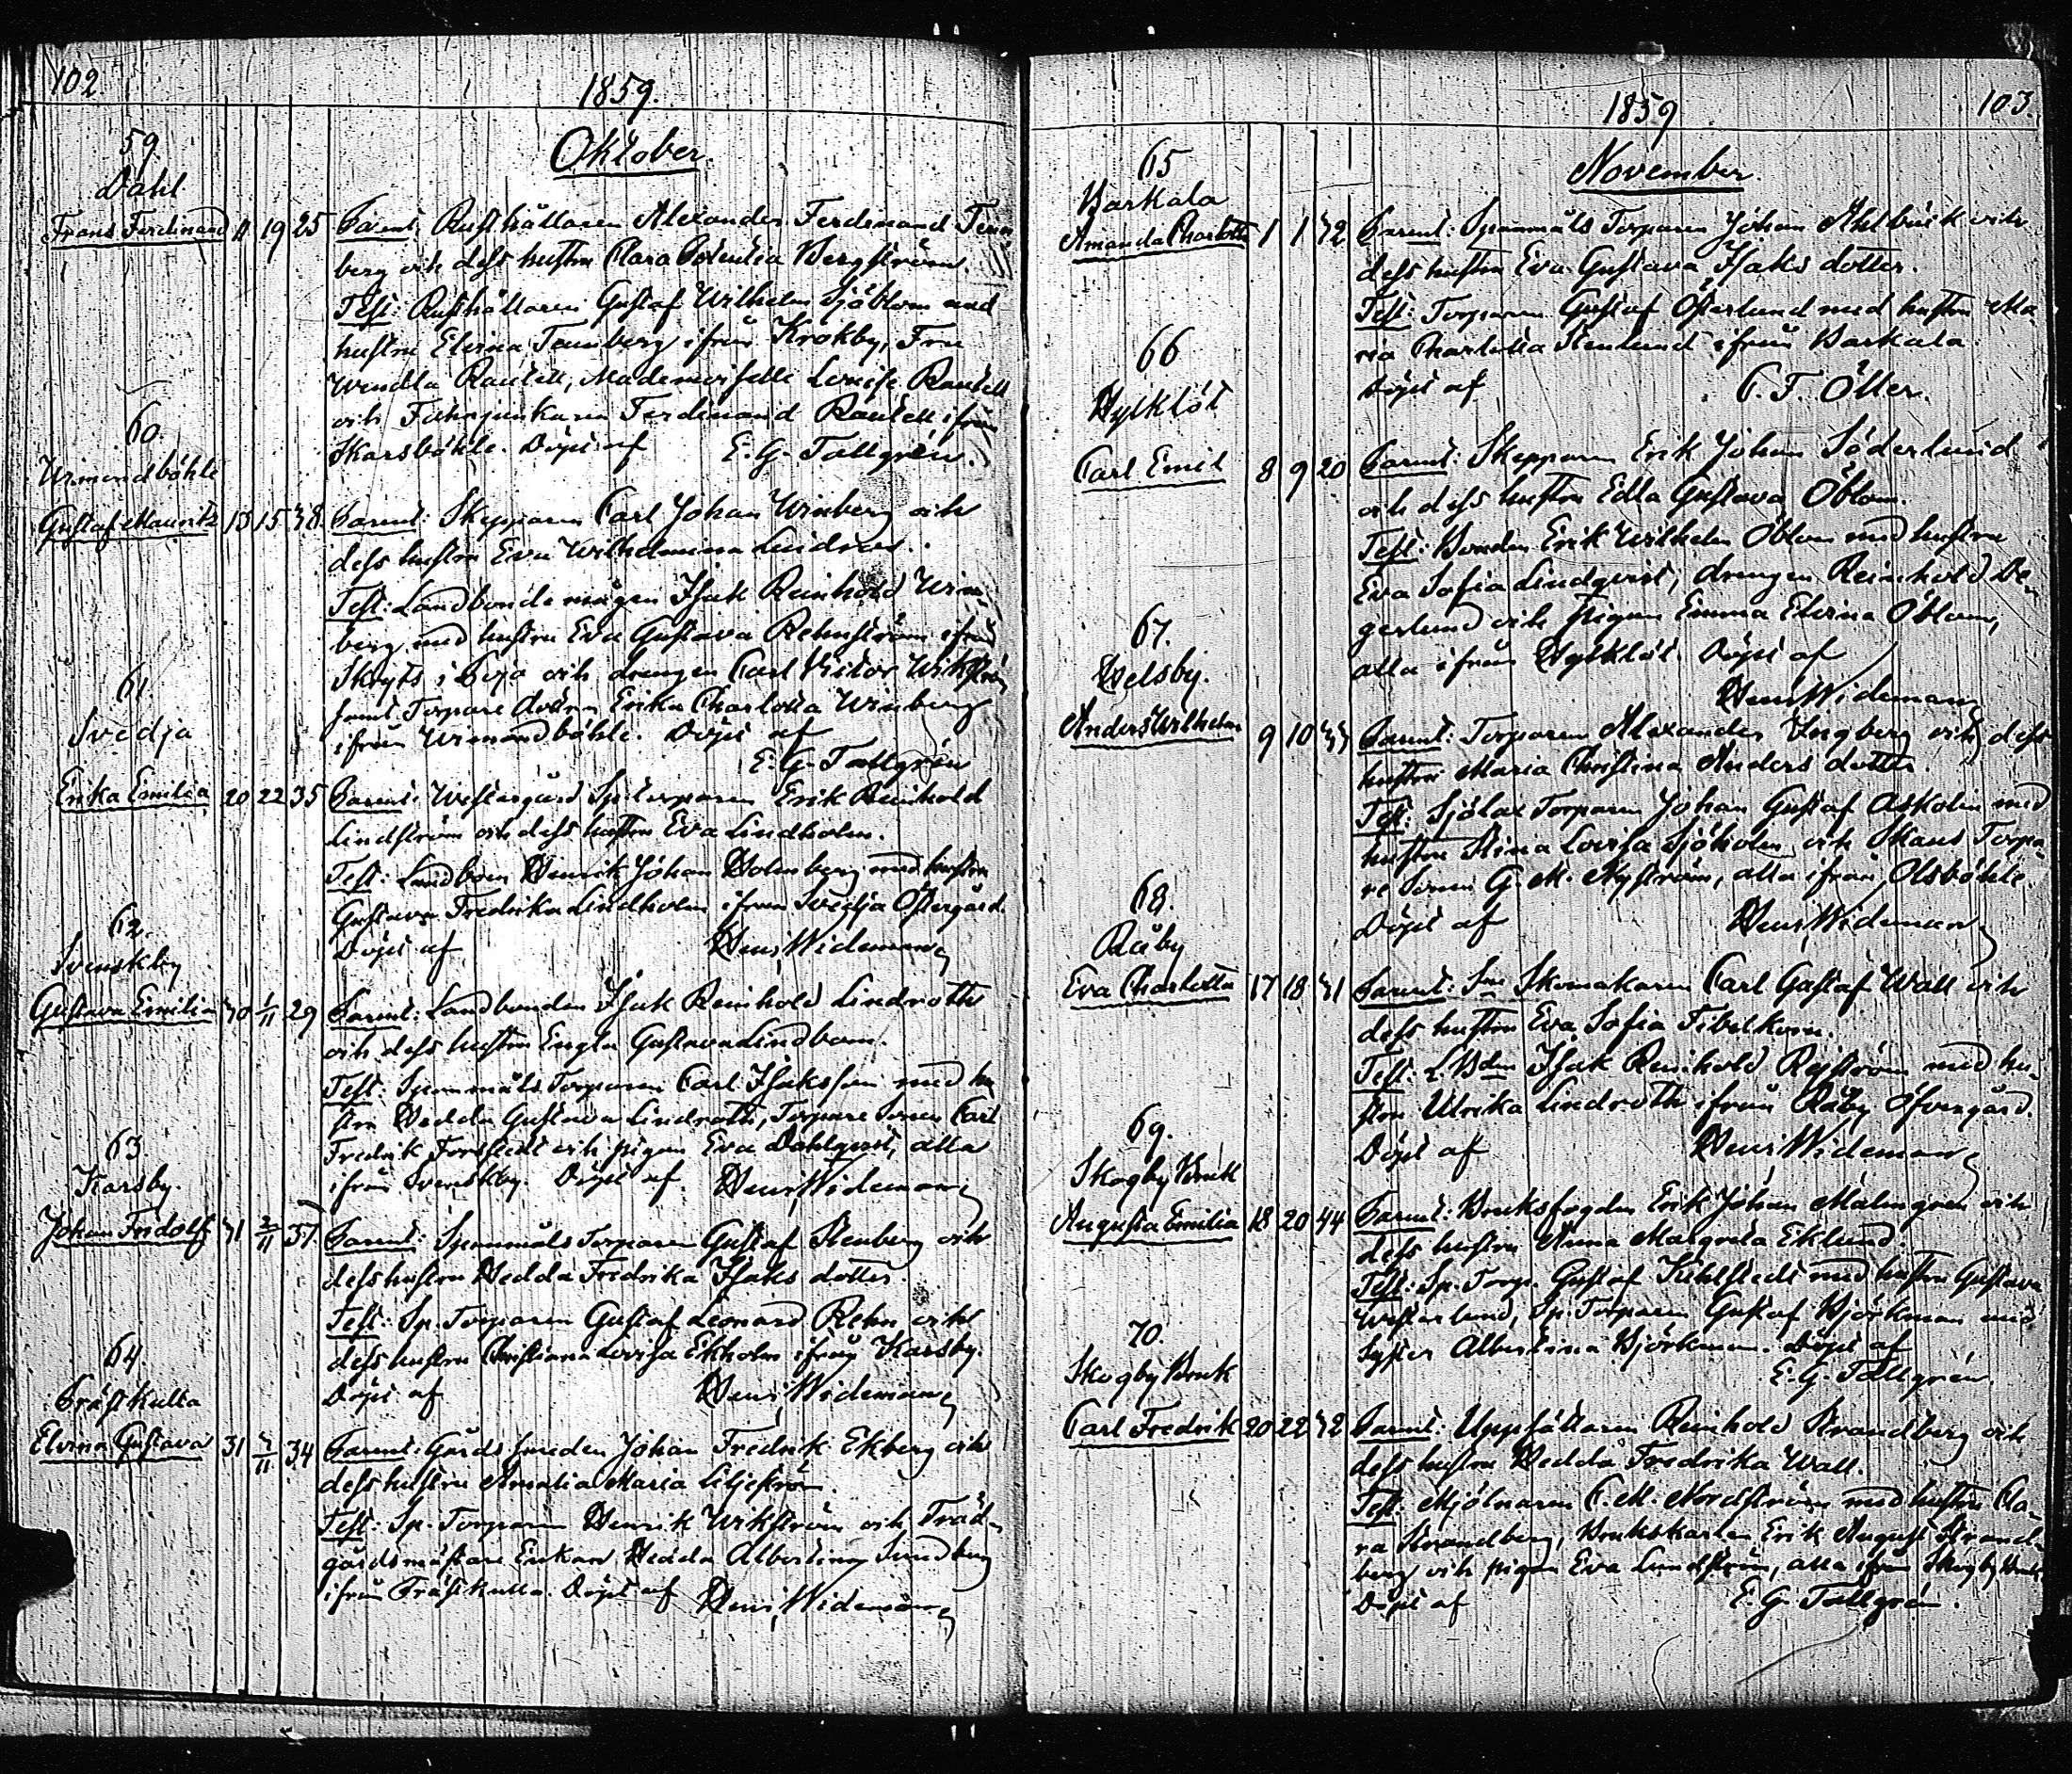 102.
1859.
Oktober.
59
Dahl
Frans Ferdinand 11 19 25 Parent. Rusthållaren Alexander Ferdinand Tenn
berg och dess hustru Clara Bergström.
Test: Rusthållaren Gustaf Wilhelm Sjöblom med
hustru Elvina Tennberg ifrån Krokby, Fru
Wendla Rautell, Mademoiselle Louise Rautell
och Fahnjunkaren Ferdinand Rautell ifrån
Skarsböhle. Döpt af E. G. Tallgrén.
60.
Wimondböhle
Gustaf Mauritz 13 15 38 Parent: Skepparen Carl Johan Winberg och
dess hustru Eva Wilhelmina Lindroos.
Test: Landbonde mågen Isak Reinhold Win-
berg med hustru Eva Gustava Rehnström ifrån
Skogts i Bojo och drengen Carl Victor Wikström
samt Torpare dottren Erika Charlotta Winberg
ifrån Wimondböhle. Döpt af
E. G. Tallgrén
61
Svedja
Erika Emilia 20 22 35 Parent: Westergård Sp: torparen Erik Reinhold
Lindström och dess hustru Eva Lindholm.
Test: Landbon Henrik Johan Holmberg med hustru
Gustava Fredrika Lindholm ifrån Svedja Östergård.
Döpt af Henr. Wideman
62.
Svenskby
Gustava Emilia 30 1/11 29 Parent: Landbonden Isak Reinhold Lindroth
och dess hustru Engla Gustava Lindbom.
Test: Spannmåls Torparen Carl Isaksson med hu
stru Hedda Gustava Lindroth, Torpare Sonen Carl
Fredrik Forstedt och pigan Eva Dahlqvist, alla
ifrån Svenskby. Döpt af Henr. Wideman
63.
Karsby.
Johan Fridolf 31 2/11 37 Parent: Spannmåls Torparen Gustaf Stenberg och
dess hustru Hedda Fredrika Isaks dotter.
Test: Sp. Torparen Gustaf Leonard Rehn och
dess hustru Christiana Lovisa Ekholm ifrån Karsby.
Döpt af Henr. Wideman
64.
Träskulla
Elvina Gustava 31 3/11 34 Parent: Gårds smeden Johan Fredrik Ekberg och
dess hustru Amalia Maria Liljeström.
Test: Sp. Torparen Henrik Wikström och Träd-
gårdsmästare Enkan Hedda Albertina Sundberg
ifrån Träskulla. Döpt af Henr. Wideman
1859
103.
November
65
Barkala
Amanda Charlotta 1 1 32 Parent: Spannmåls Torparen Johan Ahlbäck och
dess hustru Eva Gustava Isaks dotter.
Test: Torparen Gustaf Österlund med hustru Ma-
ria Charlotta Stenlund ifrån Barkala.
Döpt af C. F. Öller.
66
Hylklöt
Carl Emil 8 9 20 Parent: Skepparen Erik Johan Söderlund
och dess hustru Edla Gustava Öblom.
Test: Bonden Erik Wilhelm Öblom med hustru
Eva Sofia Lindqvist, drengen Reinhold De-
gerlund och Pigan Emma Elvina Öblom,
alla ifrån Hylklöt. Döpt af
Henr. Wideman
67.
Helsby.
Anders Wilhelm 9 10 33 Parent: Torparen Alexander Ingberg och dess
hustru Maria Christina Anders dotter.
Test: Sjölax Torparen Johan Gustaf Askolin med
hustru Stina Lovisa Sjöholm och Skans Torpa-
re Sonen G. M. Nyström, alla ifrån Olsböhle.
Döpt af Henr. Wideman
68.
Råby
Eva Charlotta 17 18 31 Parent: Sn Skomakaren Carl Gustaf Wall och
dess hustru Eva Sofia Tibelkorn.
Test: L Bden Isak Reinhold Rejström med hu-
stru Ulrika Lindroth ifrån Råby Öfvergård.
Döpt af Henr. Wideman
69.
Skogby Bruk
Augusta Emilia 18 20 44 Parent: Bruksfogden Erik Johan Malmgren och
dess hustru Anna Margreta Eklund.
Test: Sp. Torp. Gustaf Kihlstedt med hustru Gustava
Westerlund, Sp. Torparen Gustaf Björkman med
Syster Albertina Björkman. Döpt af
E. G. Tallgrén.
70.
Skogby Bruk
Carl Fredrik 20 22 32 Parent: Uppsättaren Reinhold Strandberg och
dess hustru Hedda Fredrika Wall.
Test: Mjölnaren C. M. Nordström med hustru Cla-
ra Strandberg, Brukskarlen Erik August Strand-
berg och pigan Eva Lundström, alla ifrån Skogby Bruk.
Döpt af E. G. Tallgrén.